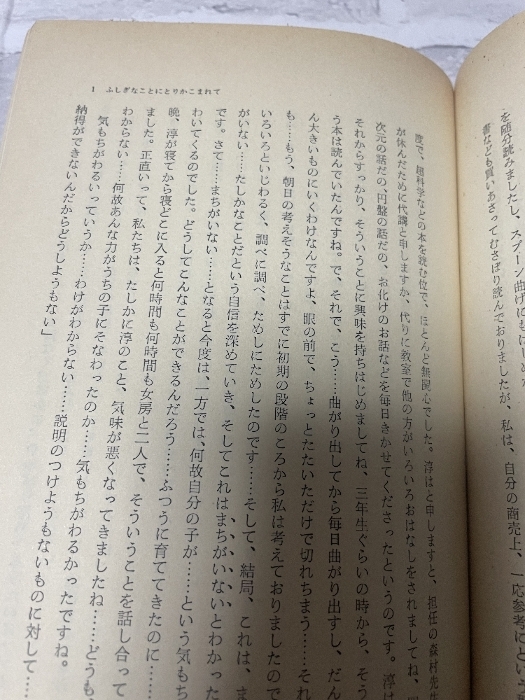 を随分読みましたし、スプーン曲げにも
書なども買いあさってむさぼり読んでおりましたが、私は、自分の商売上、一応参考にとい
1 ふしぎなことにとりかこまれて
度で、超科学などの本を読む位で、ほとんど無関心でした。淳はと申しますと、担任の森村先
が休んだために代講と申しますか、代りに教室で他の方がいろいろおはなしをされましてね、
次元の話だの、円盤の話だの、お化けのお話などを毎日きかせてくださったというのです。淳は
それからすっかり、そういうことに興味を持ちはじめましてね、三年生ぐらいの時から、そ
う本は読んでいたんですね。で、それで、こう……曲がり出してから毎日曲がり出すし、だん
ん大きいものにいくわけなんですよ、眼の前で、ちょっとたたいただけで切れちまう……それ
も……もう、朝日の考えそうなことはすでに初期の段階のころから私は考えておりましたので
いろいろといじわるく、調べに調べ、ためしにためしたのです……そして、結局、これは、ま
がいない……たしかなことだという自信を深めていき、そしてこれはまちがいないとわかった
です。さて……まちがいない……となると今度は、一方では、何故自分の子が……という気もち
わいてくるのでした。どうしてこんなことができるんだろう……ふつうに育ててきたのに……
晩、淳が寝てから寝どこに入ると何時間も何時間も女房と二人で、そういうことを話し合って
ました。正直いって、私たちは、たしかに淳のこと、気味が悪くなってきましたね……どうも
わからない……何故あんな力がうちの子にそなわったのか……気もちがわるかったですね。
気もちがわるいっていうか……わけがわからない……説明のつけようもないものに対して……
納得ができないんだからどうしようもない」